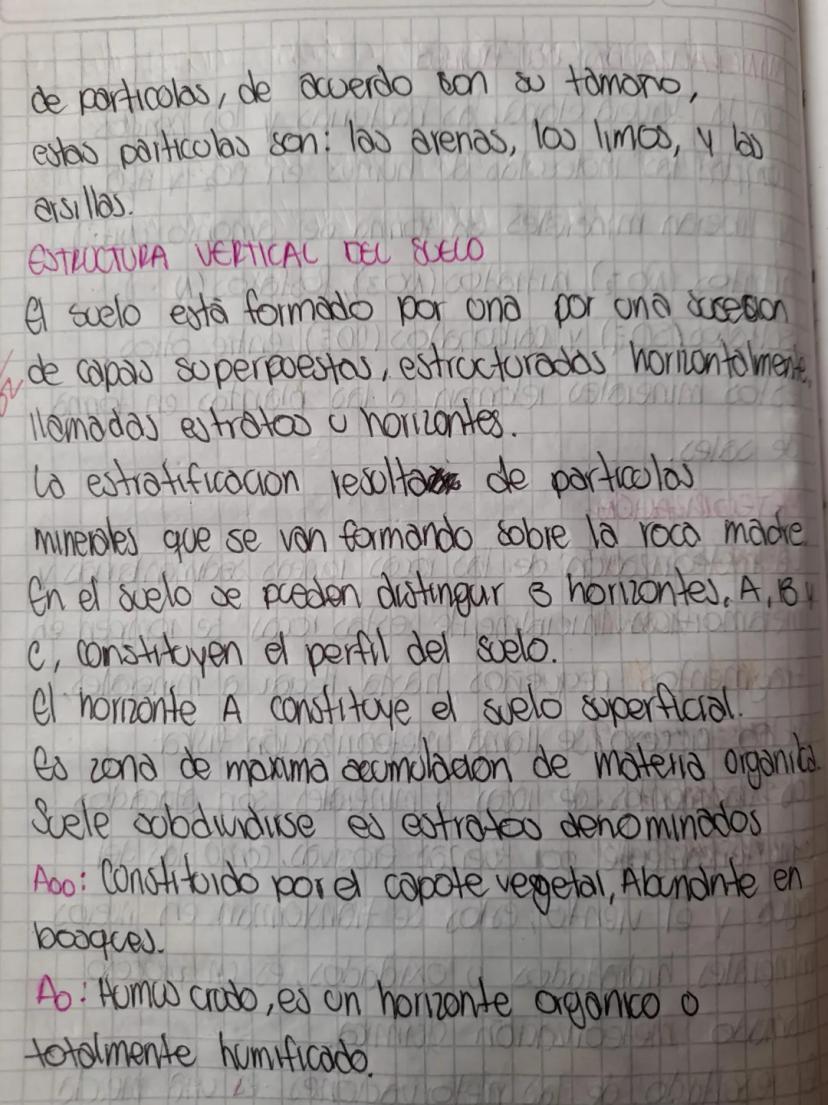 de particolas, de acuerdo son su tamano,
estas particolas son: las arenas, los limos, y las
arsillas.
ESTRUCTURA VERTICAL DEL SUELO
El suelo está formado por una por una sucesion
de capas superpoestas, estructuradas horizontalmente,
llamadas estratos u horizontes.
La estratificacion resolta de particolas
minerales que se van formando sobre la roca madre
En el suelo se pueden distingur 3 horizontes, A, B y
C, constituyen el perfil del suelo.
El horizonte A constituye el suelo superficial.
Es zona de maxima acumulacion de materia organica.
Suele subdividirse es estratos denominados
Aoo: Constituido por el capote vegetal, Abundnte en
bosques.
Ao: Humus crudo, es un horizonte organico o
totalmente humificado.